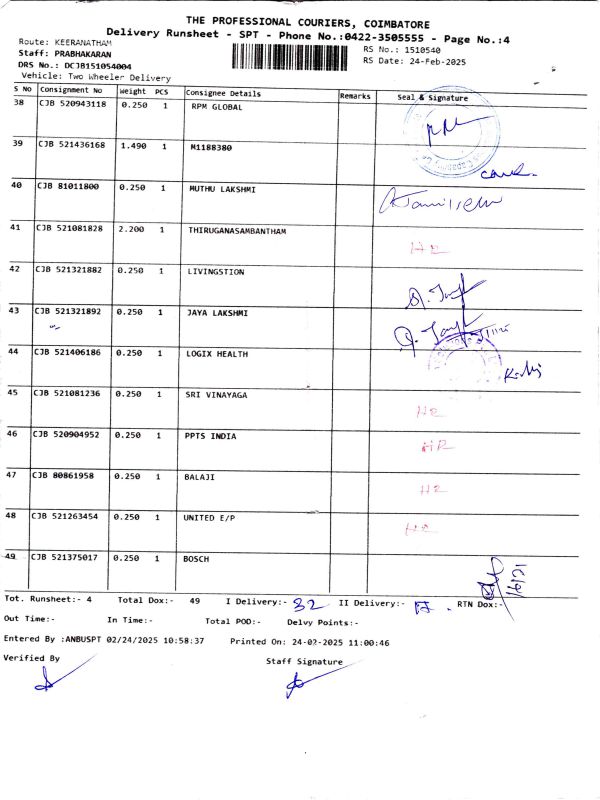 THE PROFESSIONAL COURIERS, COIMBATORE
Delivery Runsheet - SPT - Phone No.:0422-3505555 - Page No.:4
Route: KEERANATHAM
RS No.: 1510540
Staff: PRABHAKARAN
RS Date: 24-Feb-2025
DRS No.: DCJB151054004
Vehicle: Two Wheeler Delivery
S No Consignment No Weight PCS Consignee Details Remarks Seal & Signature
38 CJB 520943118 0.250 1 RPM GLOBAL
39 CJB 521436168 1.490 1 M1188380
40 CJB 81011800 0.250 1 MUTHU LAKSHMI
41 CJB 521081828 2.200 1 THIRUGANASAMBANTHAM HR
42 CJB 521321882 0.250 1 LIVINGSTION
43 CJB 521321892 0.250 1 JAYA LAKSHMI
44 CJB 521406186 0.250 1 LOGIX HEALTH
45 CJB 521081236 0.250 1 SRI VINAYAGA HR
46 CJB 520904952 0.250 1 PPTS INDIA HR
47 CJB 80861958 0.250 1 BALAJI HR
48 CJB 521263454 0.250 1 UNITED E/P HR
49 CJB 521375017 0.250 1 BOSCH
Tot. Runsheet:- 4 Total Dox:- 49 I Delivery:- 32 II Delivery:- 17. RTN Dox:-
Out Time:- In Time:- Total POD:- Delvy Points:-
Entered By :ANBUSPT 02/24/2025 10:58:37 Printed On: 24-02-2025 11:00:46
Verified By
Staff Signature